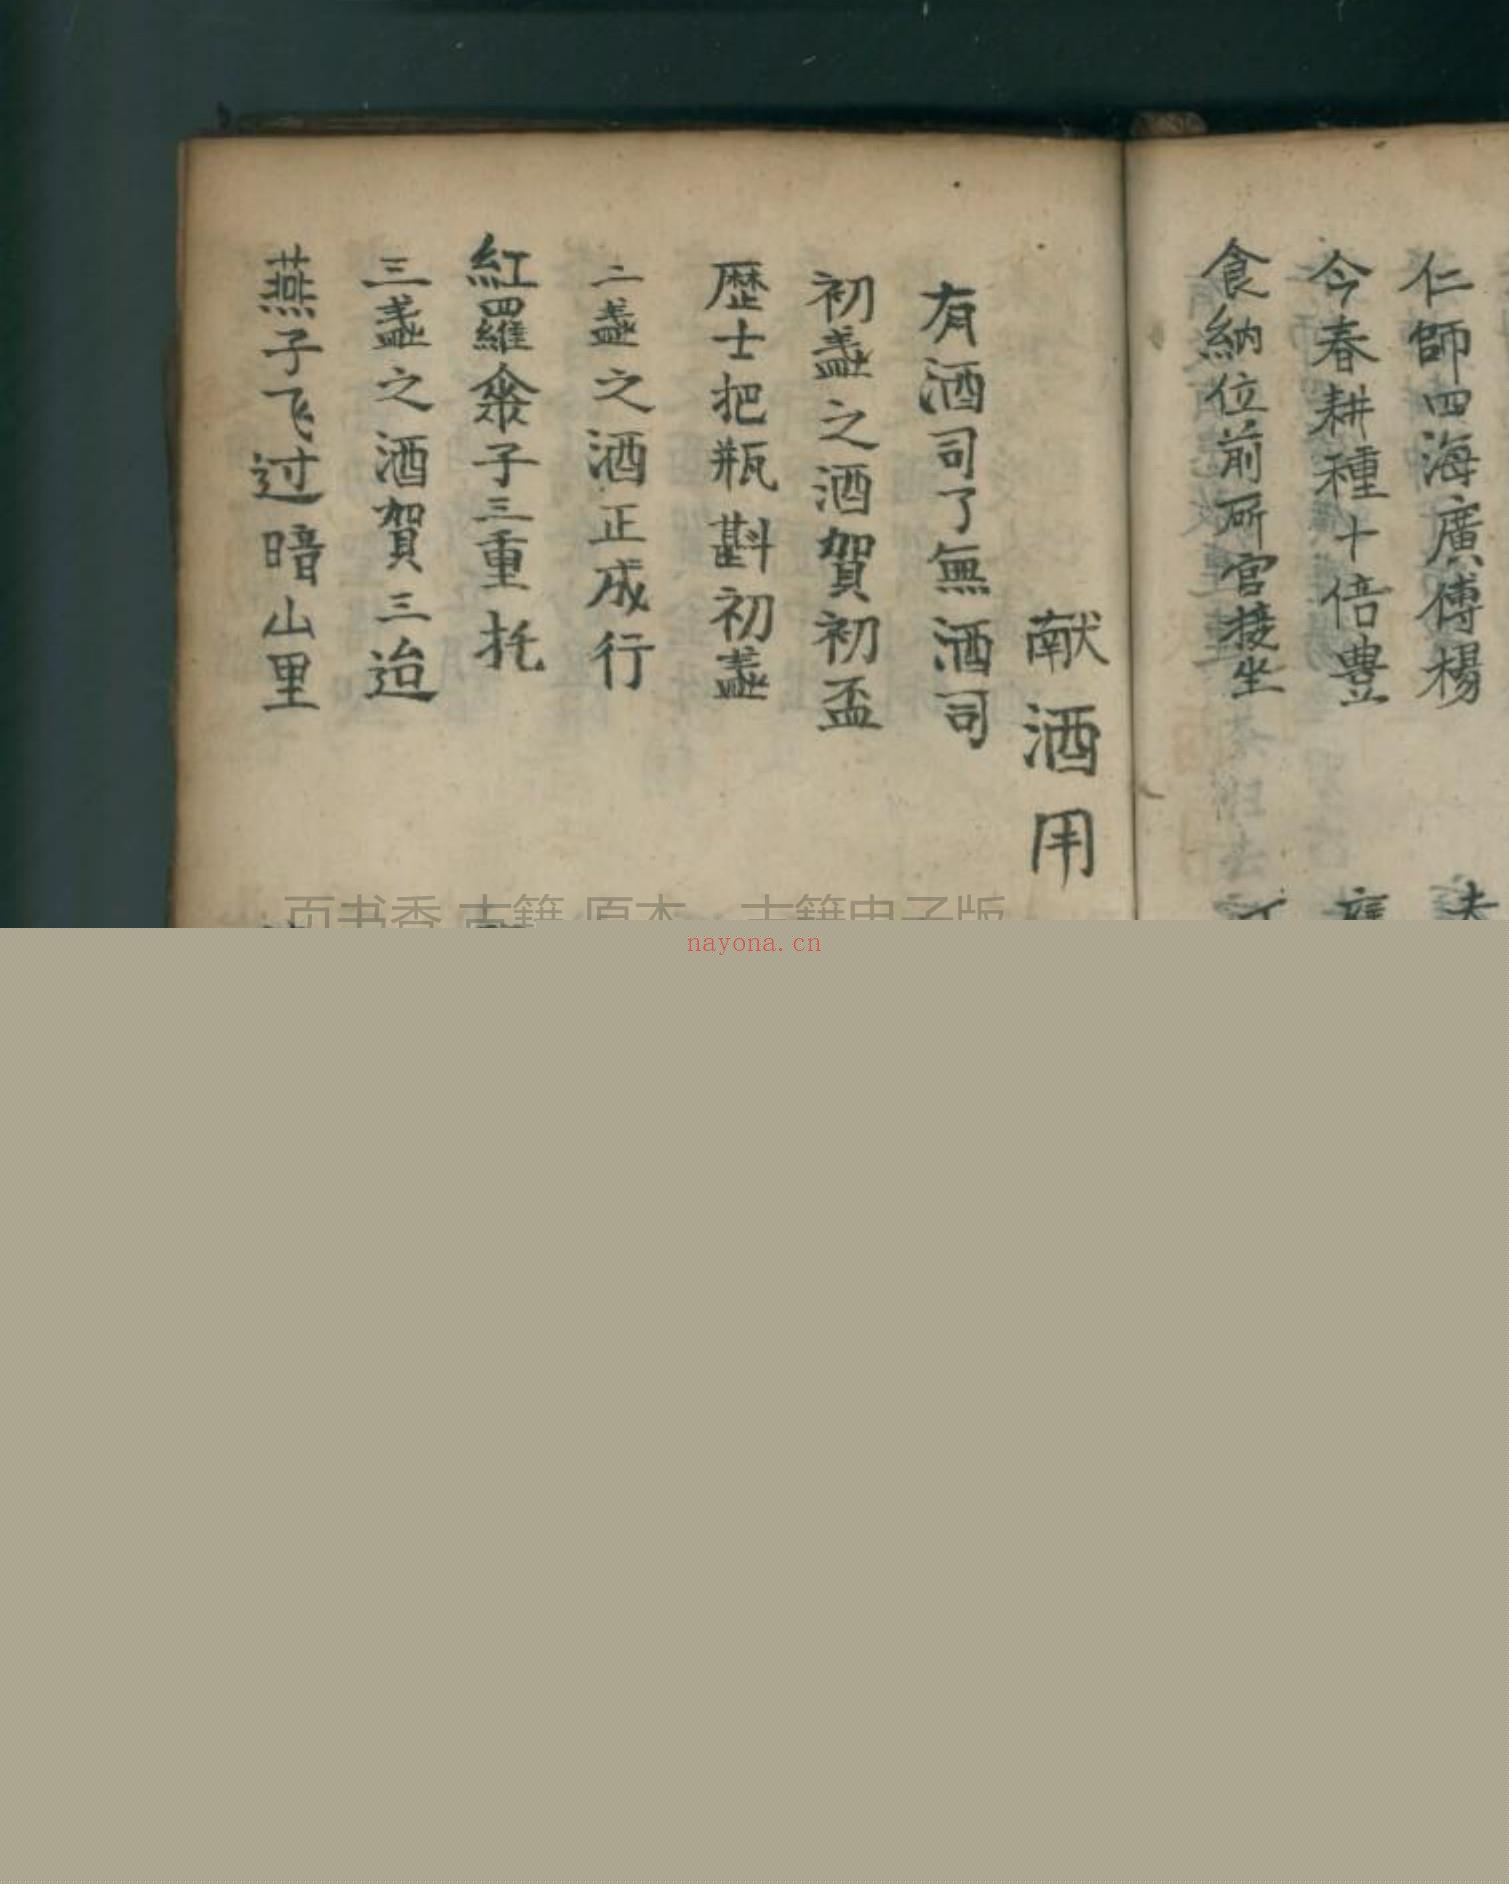 仁師四海廣傳楊
今春耕種十倍豊
食納位前所官接坐
献酒用
有酒司了無酒司
初盞之酒賀初盃
歴士把瓶斟初盞
二盞之酒正成行
紅羅傘子三重托
三盞之酒賀三迨
燕子飞过暗山里
nayona.cn